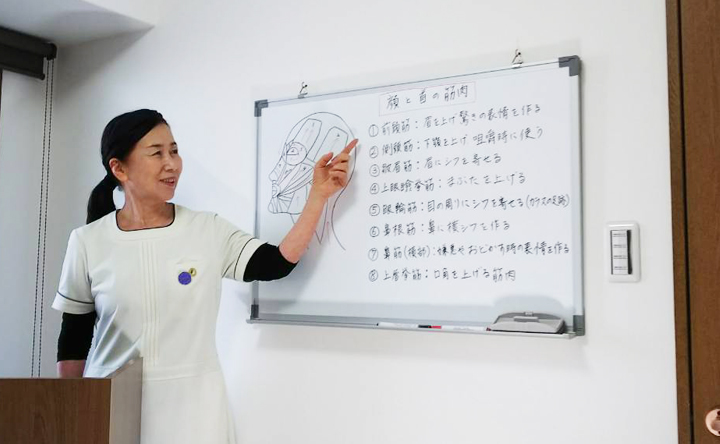 顔と首の筋肉
① 前頭筋：眉を上げ驚きの表情を作る
② 側頭筋：下顎を上げ咀嚼時に使う
③ 皺眉筋：眉にシワを寄せる
④ 上眼瞼挙筋：まぶたを上げる
⑤ 眼輪筋：目の周りにシワを寄せる(カラスの足跡)
⑥ 鼻根筋：鼻に横シワを作る
⑦ 鼻筋(横部)：嫌悪やおどかす時の表情を作る
⑧ 上唇挙筋：口角を上げる筋肉